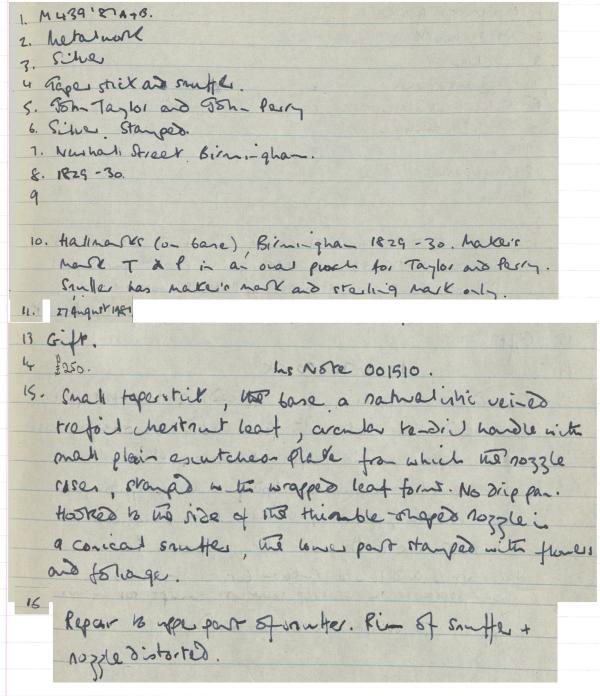 1. M439'87 A+B.
2. Metalwork
3. Silver
4 Taper stick and snuffer.
5. John Taylor and John Perry
6. Silver, stamped.
7. Newhall Street, Birmingham.
8. 1829-30.
9
10. Hallmarks (on base), Birmingham 1829-30. Maker's
mark T & P in an oval punch for Taylor and Perry.
Snuffer has maker's mark and sterling mark only.
11. 27 August 1987
13 Gift.
14 £250. Ins Note 001510.
15. Small taperstick, the base a naturalistic veined
trefoil chestnut leaf, circular tendril handle with
small plain escutcheon plate from which the nozzle
rises, stamped with wrapped leaf forms. No drip pan.
Hooked to the side of the thimble-shaped nozzle is
a conical snuffer, the lower part stamped with flowers
and foliage.
16
Repair to upper part of snuffer. Rim of snuffer +
nozzle distorted.